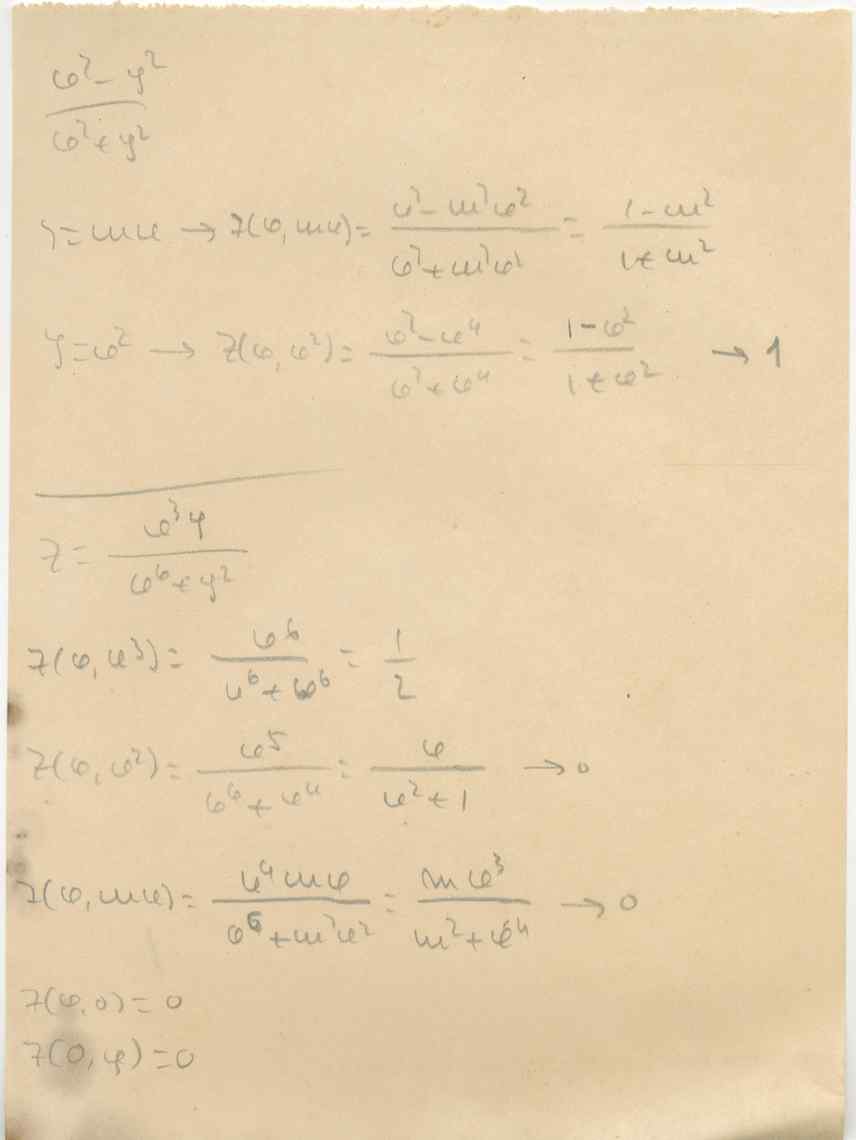 x² - y² / x² + y²
y = mx → z(x, mx) = x² - m²x² / x² + m²x² = 1 - m² / 1 + m²
y = x² → z(x, x²) = x² - x⁴ / x² + x⁴ = 1 - x² / 1 + x² → 1
z = x³y / x⁶ + y²
z(x, x³) = x⁶ / x⁶ + x⁶ = 1 / 2
z(x, x²) = x⁵ / x⁶ + x⁴ = x / x² + 1 → 0
z(x, mx) = x⁴mx / x⁶ + m²x² = mx³ / m² + x⁴ → 0
z(x, 0) = 0
z(0, y) = 0